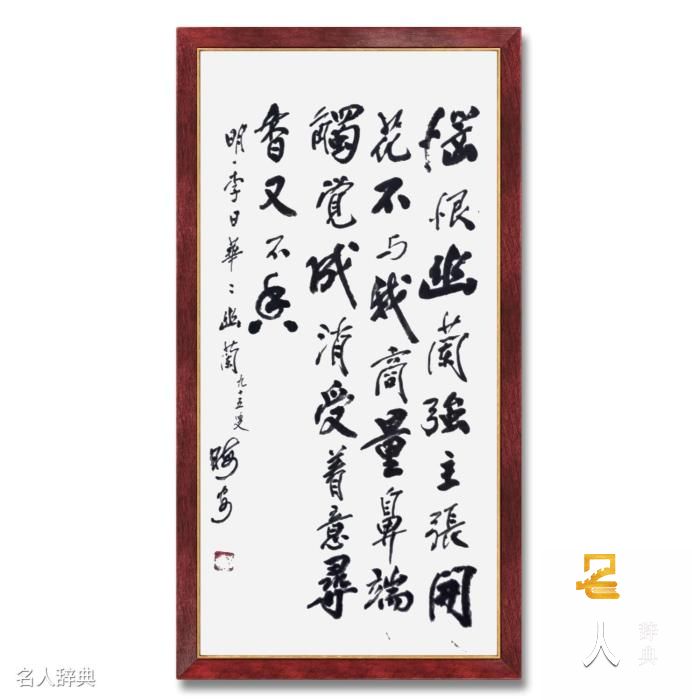 恨幽蘭強主張開
花不与我商量鼻端
觸覺成消受着意尋
香又不香
明·李日華:幽蘭 九十五叟
名人辞典
名人辞典